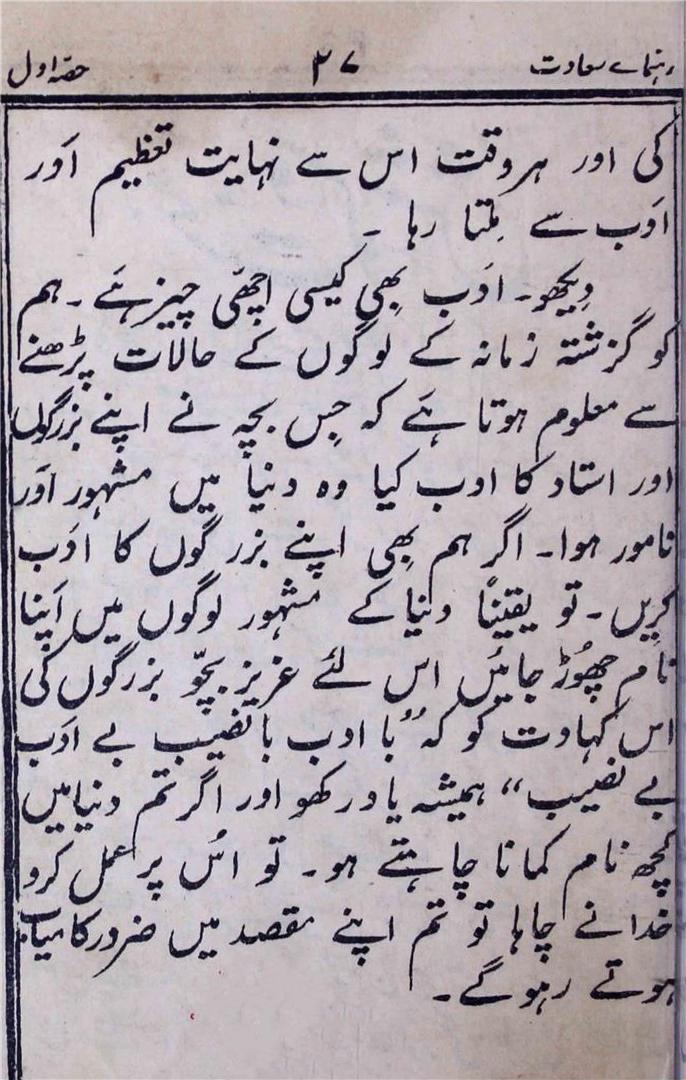 رہنمائے سعادت ۳۷ حصّہ اول
کی اور ہر وقت اس سے نہایت تعظیم اَور
اَدب سے مِلتا رہا ۔
دیکھو۔ اَدب بھی کیسی اچھّی چیز ہَے ۔ ہم
کو گزشتہ زمانہ کے لوگوں کے حالات پڑھنے
سے معلوم ہوتا ہَے کہ جِس بچہ نے اپنے بزرگوں
اور استاد کا ادب کیا وہ دنیا میں مشہور اَور
نامور ہوا۔ اگر ہم بھی اپنے بزرگوں کا ادَب
کریں ۔ تو یقیناً دنیا کے مشہور لوگوں میں اَپنا
نام چھوڑ جائیں اس لئے عزیز بچّو بزرگوں کی
اس کہاوت کو کہ ”با ادب با نصیب بے ادَب
بے نصیب“ ہمیشہ یاد رکھو اور اگر تم دنیا میں
کچھ نام کمانا چاہتے ہو۔ تو اسُ پر عمل کرو
خدا نے چاہا تو تم اپنے مقصد میں ضرور کامیاب
ہوتے رہو گے۔